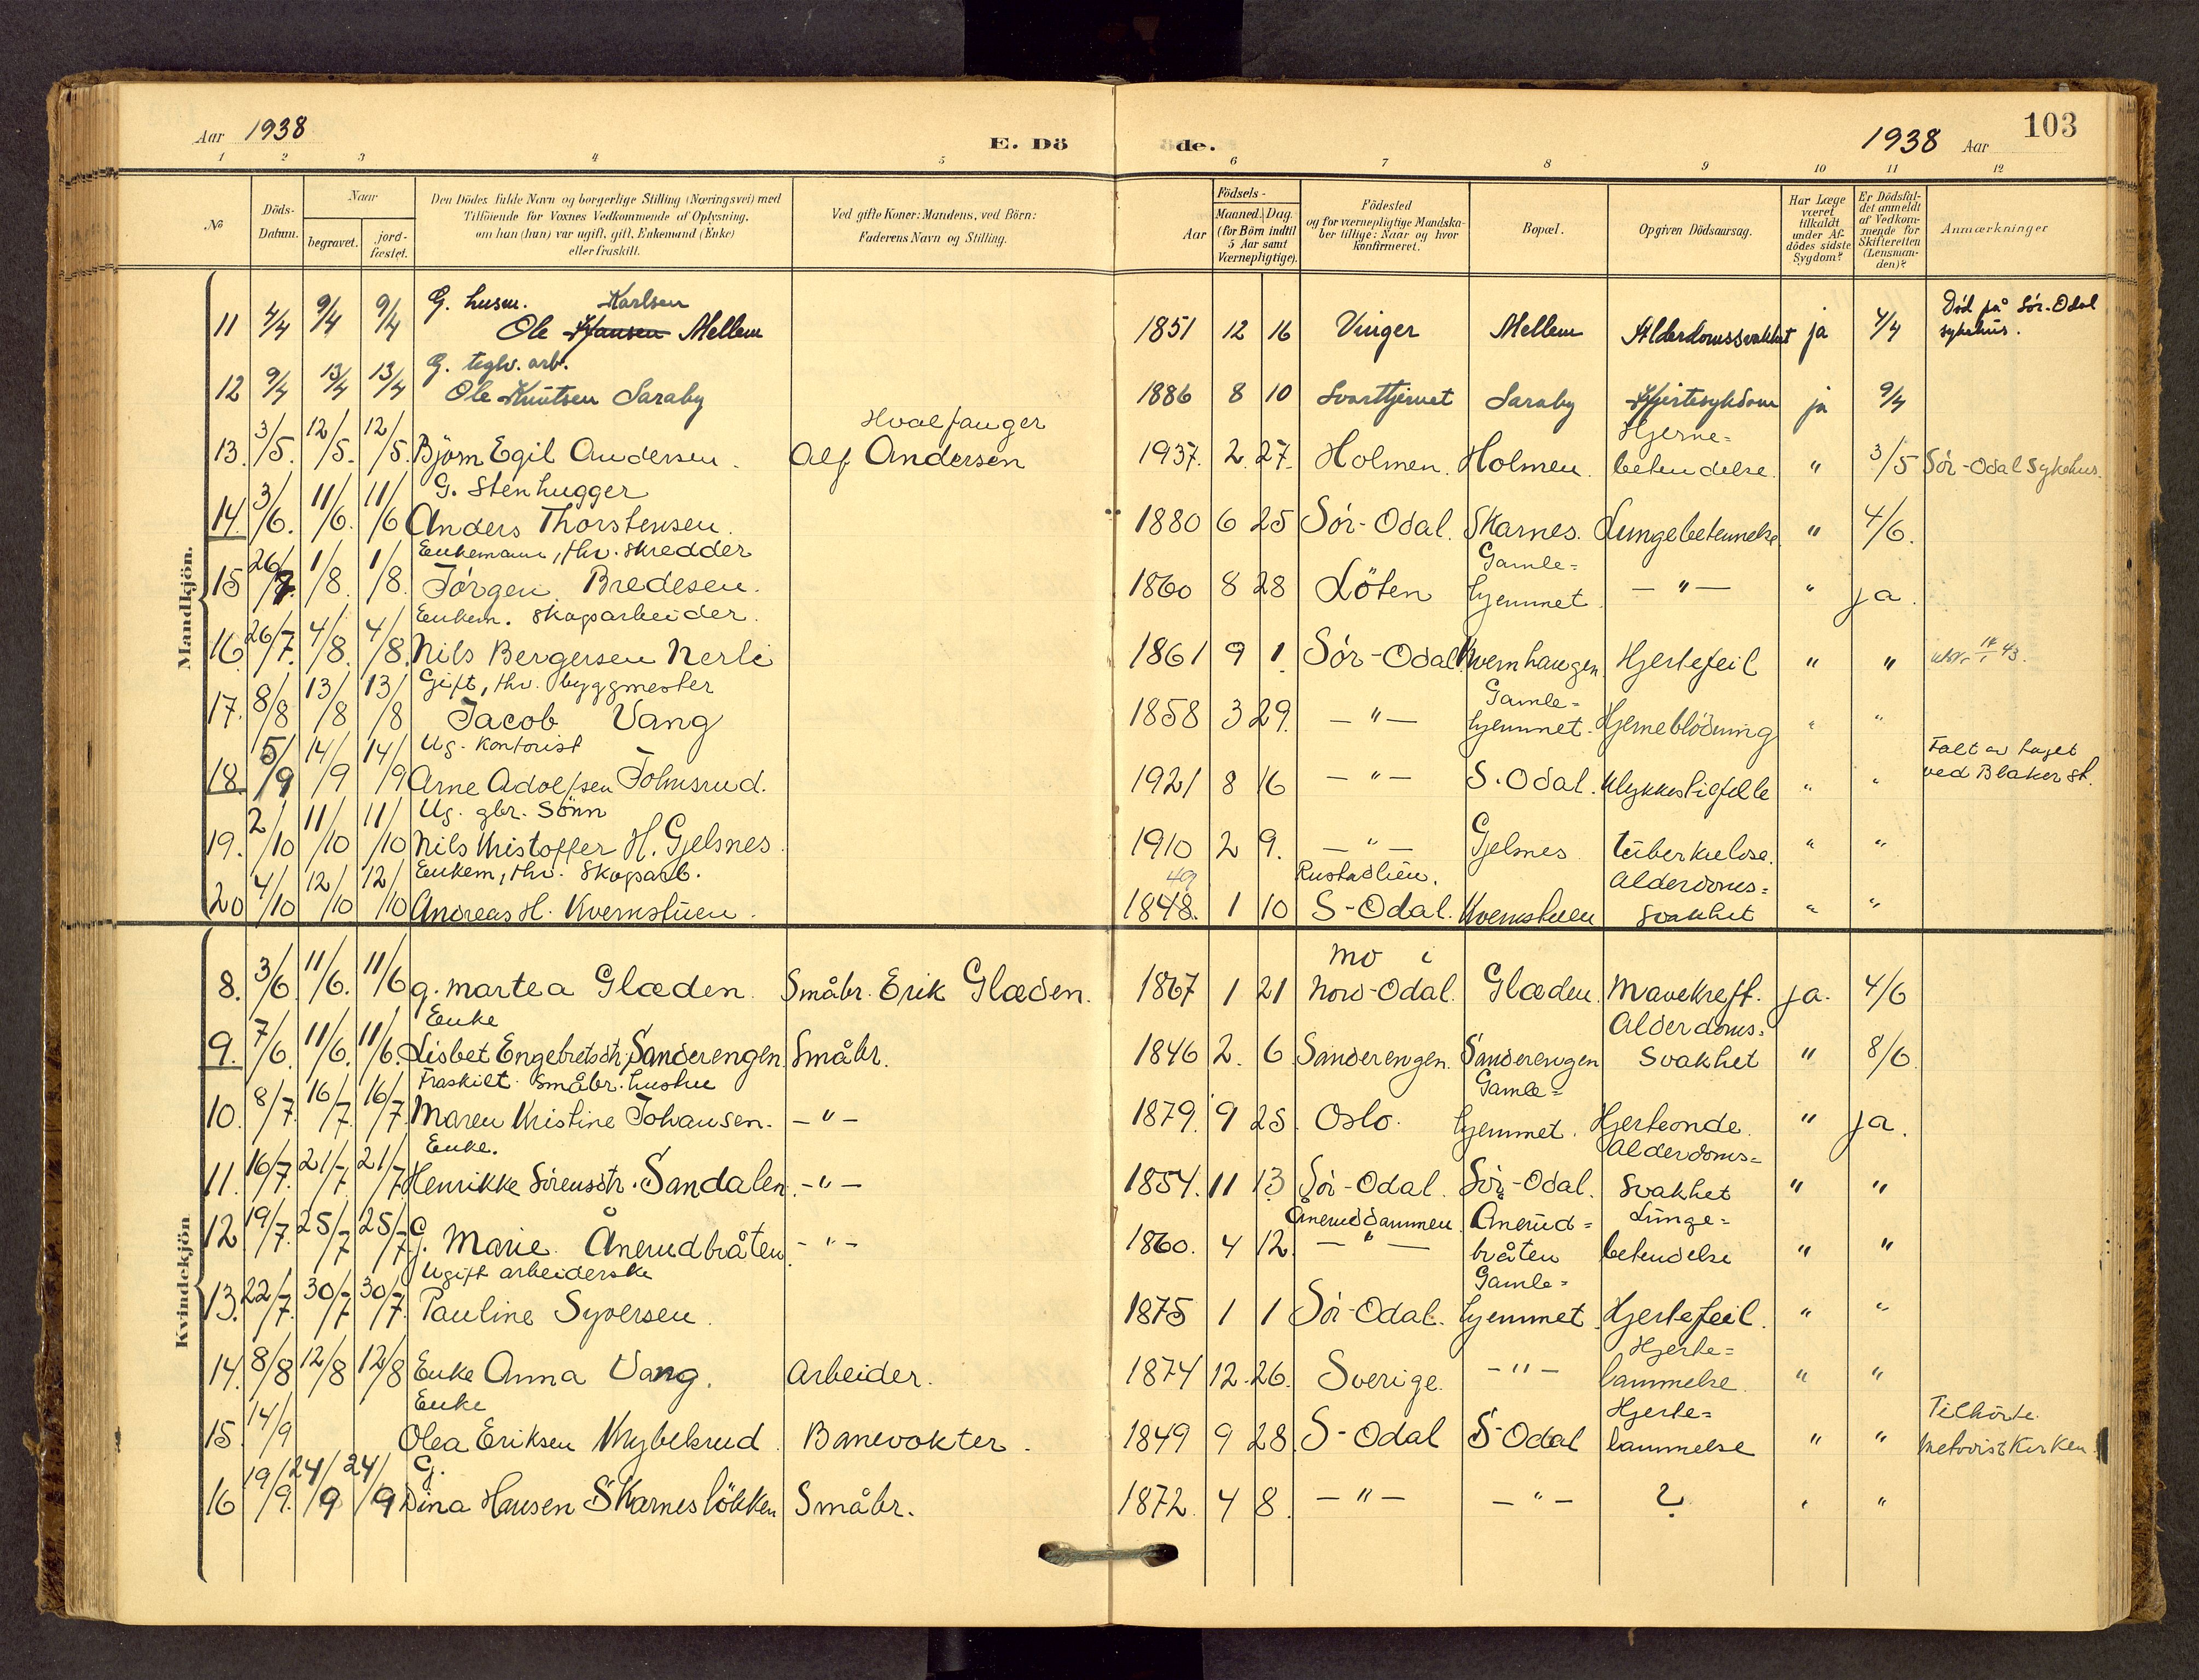 Aar 1938
E. Dö
de.
1938 Aar
103
1 2 3 4 5 6 7 8 9 10 11 12
No
Döds-
Datum.
Naar
begravet.
jord-
fæstet.
Den Dödes fulde Navn og borgerlige Stilling (Næringsvei) med
Tilföiende for Voxnes Vedkommende af Oplysning,
om han (hun) var ugift, gift, Enkemand (Enke)
eller fraskilt.
Ved gifte Koner: Mandens, ved Börn:
Faderens Navn og Stilling.
Aar
Födsels-
Maaned. Dag.
(for Börn indtil
5 Aar samt
Værnepligtige).
Födested
og for værnepligtige Mandska-
ber tillige: Naar og hvor
konfirmeret.
Bopæl.
Opgiven Dödsaarsag.
Har Læge
været
tilkaldt
under Af-
dödes sidste
Sygdom?
Er Dödsfal-
det anmeldt
af Vedkom-
mende for
Skifteretten
(Lensman-
den)?
Anmærkninger
Mandkjön.
G. husm. Karlsen Död på Sör-Odal
11 4/4 9/4 9/4 Ole Hansen Mellem 1851 12 16 Vinger Mellem Alderdomssvakhet ja 4/4 sykehus.
G. teglv. arb.
12 9/4 13/4 13/4 Ole Knutsen Saraby 1886 8 10 Svarttjernet Saraby Hjertesykdom ja 9/4
Hvalfanger Hjerne=
13. 3/5. 12/5. 12/5. Björn Egil Andersen. Alf Andersen 1937. 2. 27. Holmen. Holmen. betendelse. " 3/5 Sör-Odal Sykehus.
G. Stenhugger
14. 3/6. 11/6. 11/6 Anders Thorstensen. 1880 6 25 Sör-Odal. Skarnes. Lungebetennelse " 4/6.
Enkemann, fhv. skredder Gamle=
15 26/7. 1/8. 1/8. Jörgen Bredesen. 1860 8 28 Löten hjemmet. — " — " ja.
Enkem. Skogsarbeider.
16. 26/7. 4/8. 4/8. Nils Bergersen Nerli 1861 9 1. Sör-Odal Kvernhaugen Hjertefeil " "
Gift, fhv. byggmester Gamle=
17. 8/8 13/8 13/8 Jacob Vang 1858 3 29. — " — hjemmet. Hjerneblödning " "
Ug. Kontorist Falt av toget
18. 5/9 14/9 14/9 Arne Adolfsen Tolmsrud. 1921 8 16 — " — S. Odal. Ulykkestilfelle " " ved Blaker st.
Ug. gbr. Sönn
19. 2/10 11/10 11/10 Nils Kristoffer H. Gjelsnes. 1910 2 9. — " — Gjelsnes Tuberkulose. " "
Enkem, fhv. Skogsarb. 49 Rustadlien. Alderdoms=
20 4/10 12/10 12/10 Andreas H. Kvernstuen. 1848. 1 10 S-Odal. Kvernstuen svakhet " "
Kvindekjön
Mo i
8. 3/6 11/6. 11/6 g. Martea Glæden. Småbr. Erik Glæden. 1867 1 21 Nord-Odal. Glæden. Mavekreft. ja. 4/6
Enke Alderdoms=
9. 7/6. 11/6. 11/6. Lisbet Engebretsdtr. Sanderengen. Småbr. 1846 2. 6 Sanderengen. Sanderengen Svakhet " 8/6
Fraskilt småbr. hustru Gamle=
10. 8/7. 16/7. 16/7. Maren Kristine Johansen. — " — 1879. 9 25. Oslo. hjemmet. Hjerteonde. " ja.
Enke. Alderdoms=
11. 16/7. 21/7. 21/7 Henrikke Sörensdtr. Sandalen. — " — 1854. 11 13 Sör-Odal. Sör-Odal. Svakhet " "
Ånerüddammen. Ånerüd= Lunge=
12 19/7. 25/7 25/7 G. Marie Ånerudbråten. — " — 1860. 4 12. — " — bråten betendelse " "
Ugift arbeiderske Gamle=
13. 22/7. 30/7 30/7. Pauline Syversen. 1875 1 1 Sör-Odal. hjemmet. Hjertefeil. " "
Hjerte=
14. 8/8 12/8 12/8 Enke Anna Vang. Arbeider. 1874 12. 26. Sverige. — " — lammelse. " "
Enke Hjerte= Tilhörte
15. 14/9 Olea Eriksen Mybekrud. Banevokter. 1849 9 28. S-Odal S-Odal lammelse " " Metodistkirken.
G.
16 19/9. 24/9 24/9 Dina Hansen Skarneslökken Småbr. 1872. 4 8. — " — — " — ? " "